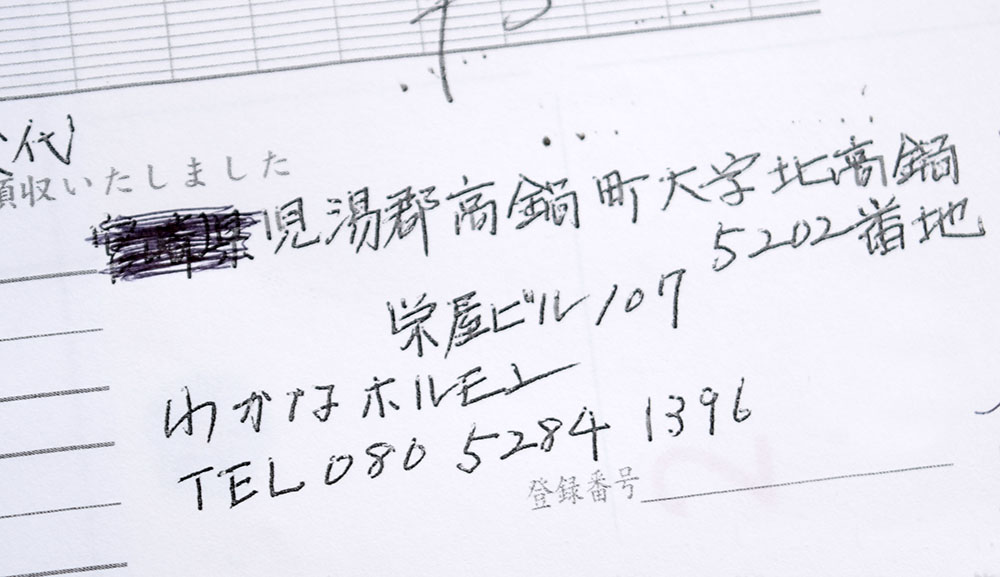 代
領収いたしました
児湯郡高鍋町大字北高鍋
5202番地
栄屋ビル107
わかなホルモン
TEL 080 5284 1396
登録番号